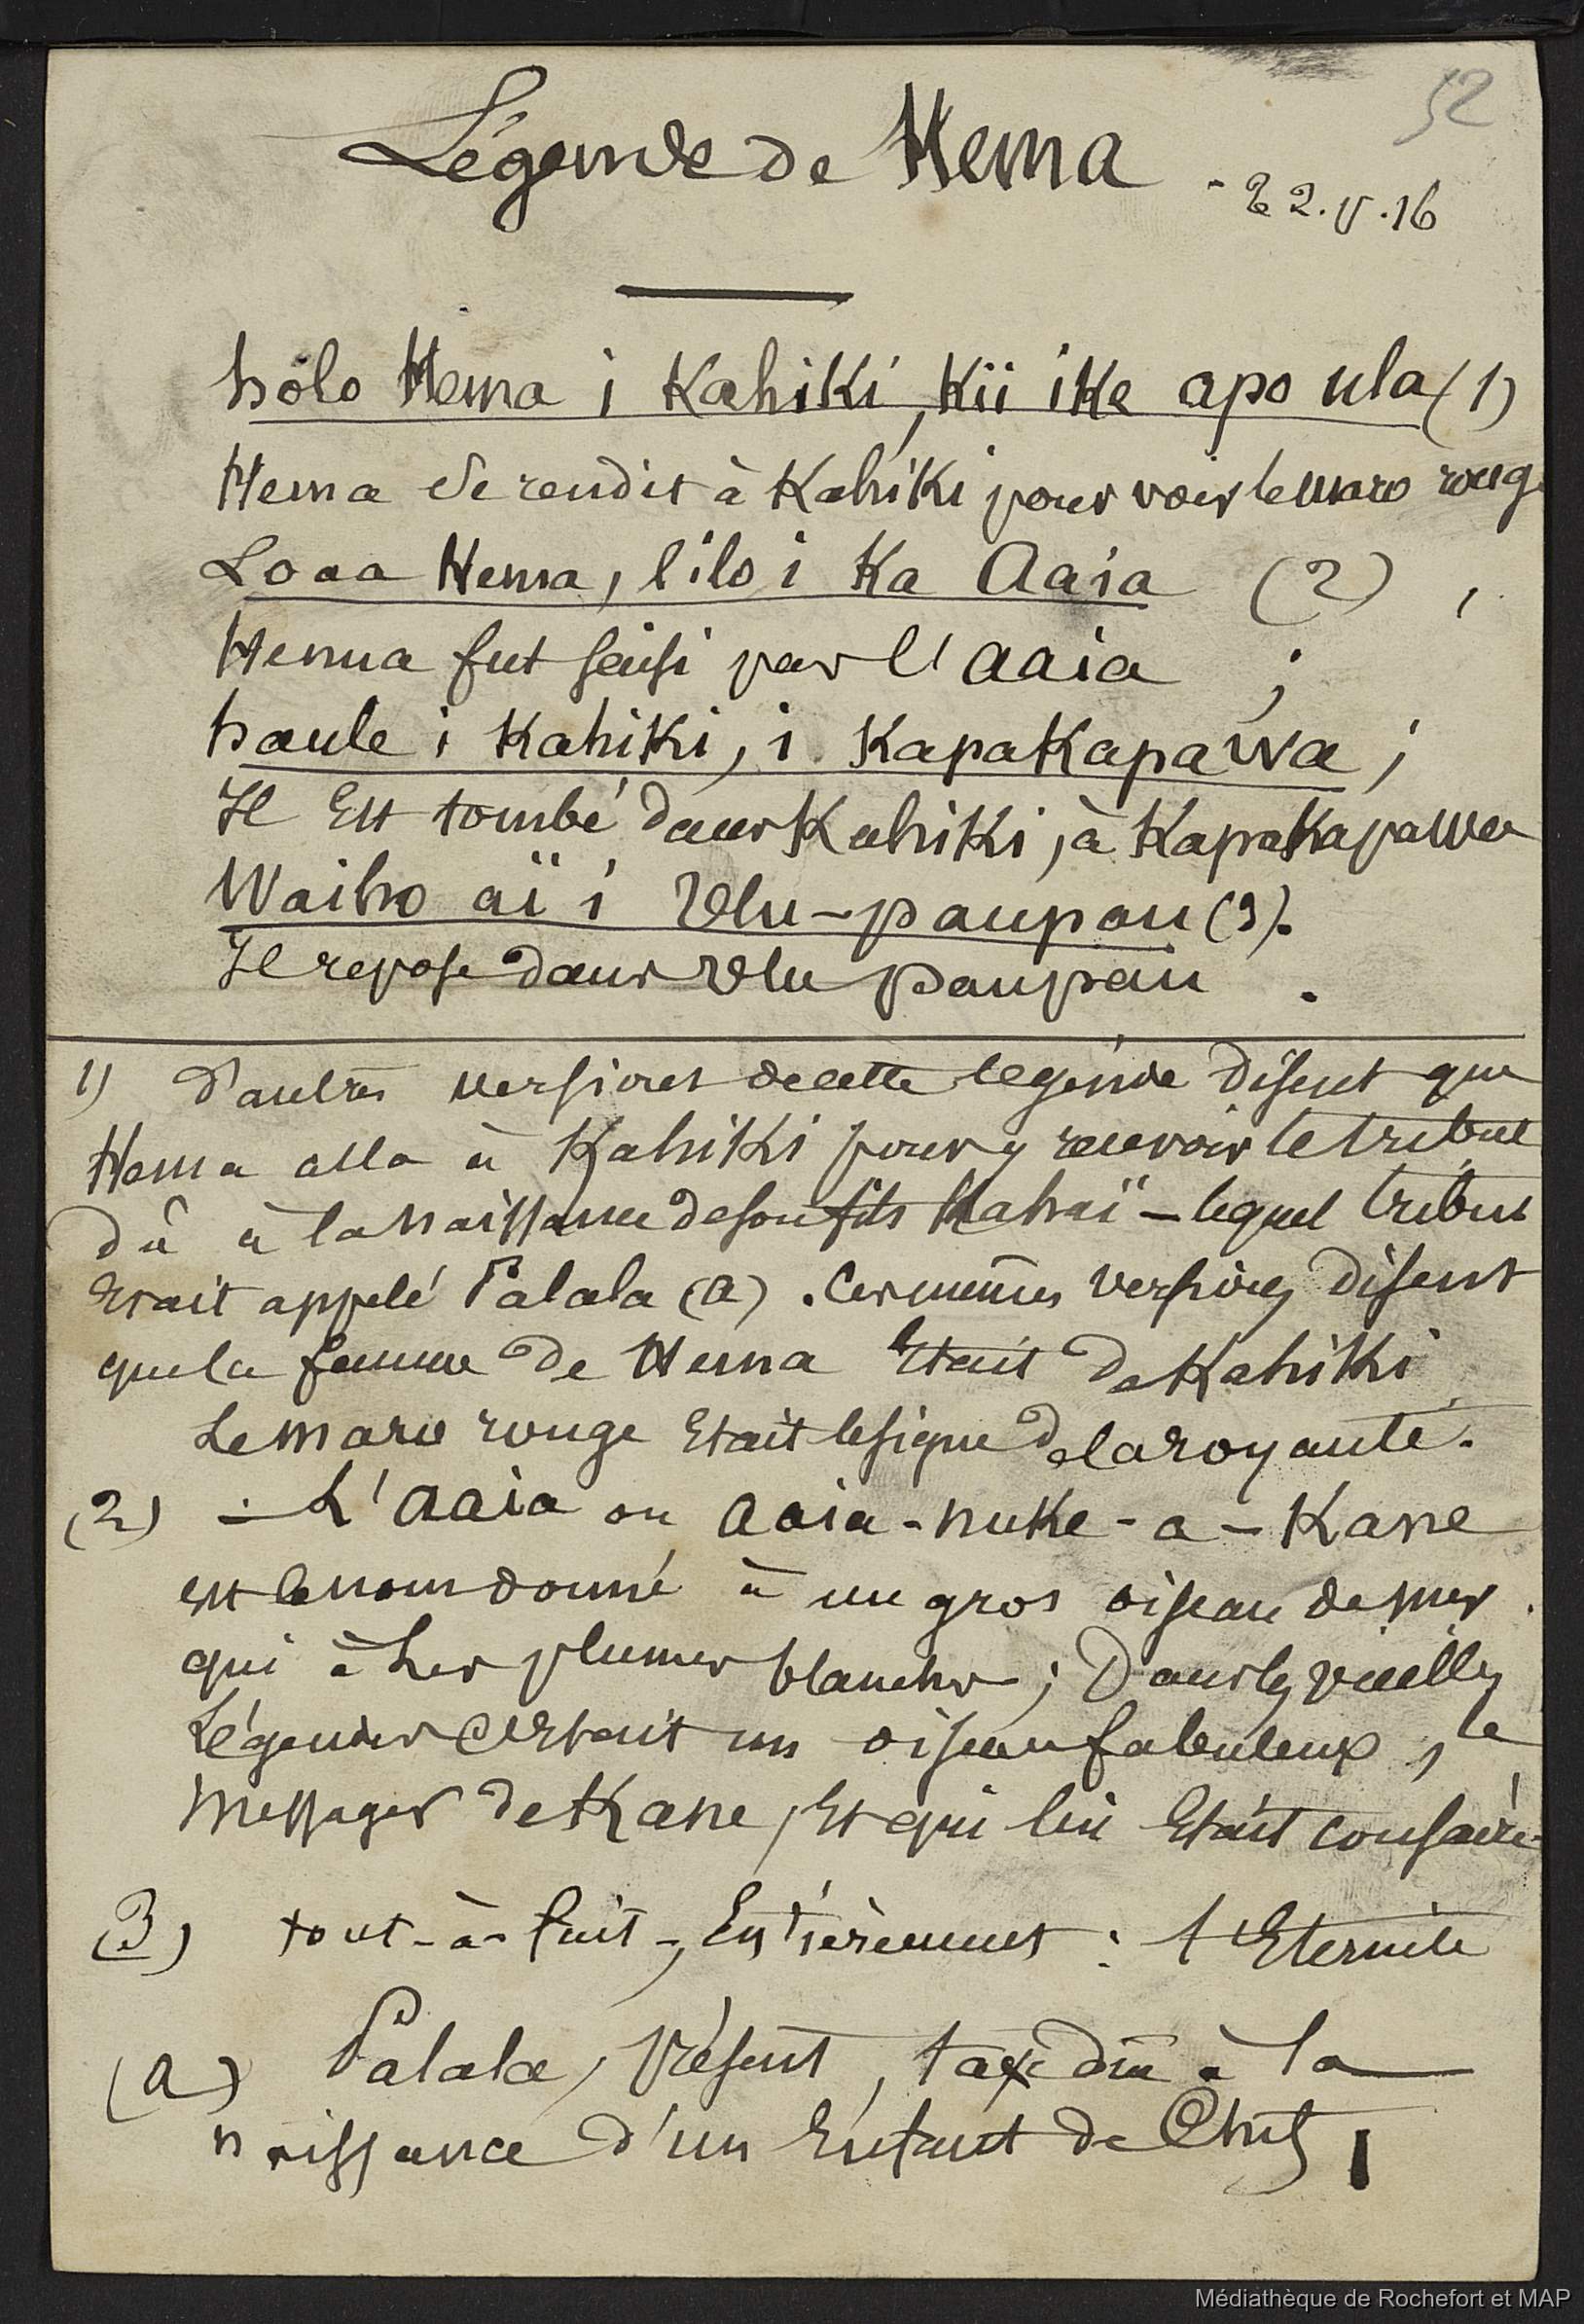 52
Légende de Hema
- 22.V.16
holo Hema i Kahiki, Kii ike apo ula (1)
Hema se rendit à Kahiki pour voir le maro rouge
Loaa Hema, lilo i Ka Aaia (2) ,
Hema fut saisi par l'aaia ;
haule i Kahiki, i KapaKapawa ;
Il Est tombé dans Kahiki, à KapaKapawa
Waiho aï i Ulu-paupau (3).
Il repose dans Ulu paupau .
1) D'autres versions de cette legende disent que
Hema alla à Kahiki pour y recevoir le tribut
dû à la naissance de son fils Kahaï - lequel tribut
Etait appelé Palala (a). Ces mêmes versions disent
que la femme de Hema Etait de Kahiki
Le maro rouge Etait le signe de la royauté.
(2) - L'aaia ou aaia-nuke-a-Kane
est le nom donné à un gros oiseau de mer
qui à les plumes blanches ; Dans les vieilles
Légendes c'Etait un oiseau fabuleux, le
messager de Kane, Et qui lui Etait consacré
(3) tout-à-fait-, Entièrement : l'Eternité
(a) Palala, présent, taxe dû à la
naissance d'un Enfant de Chef
Médiathèque de Rochefort et MAP